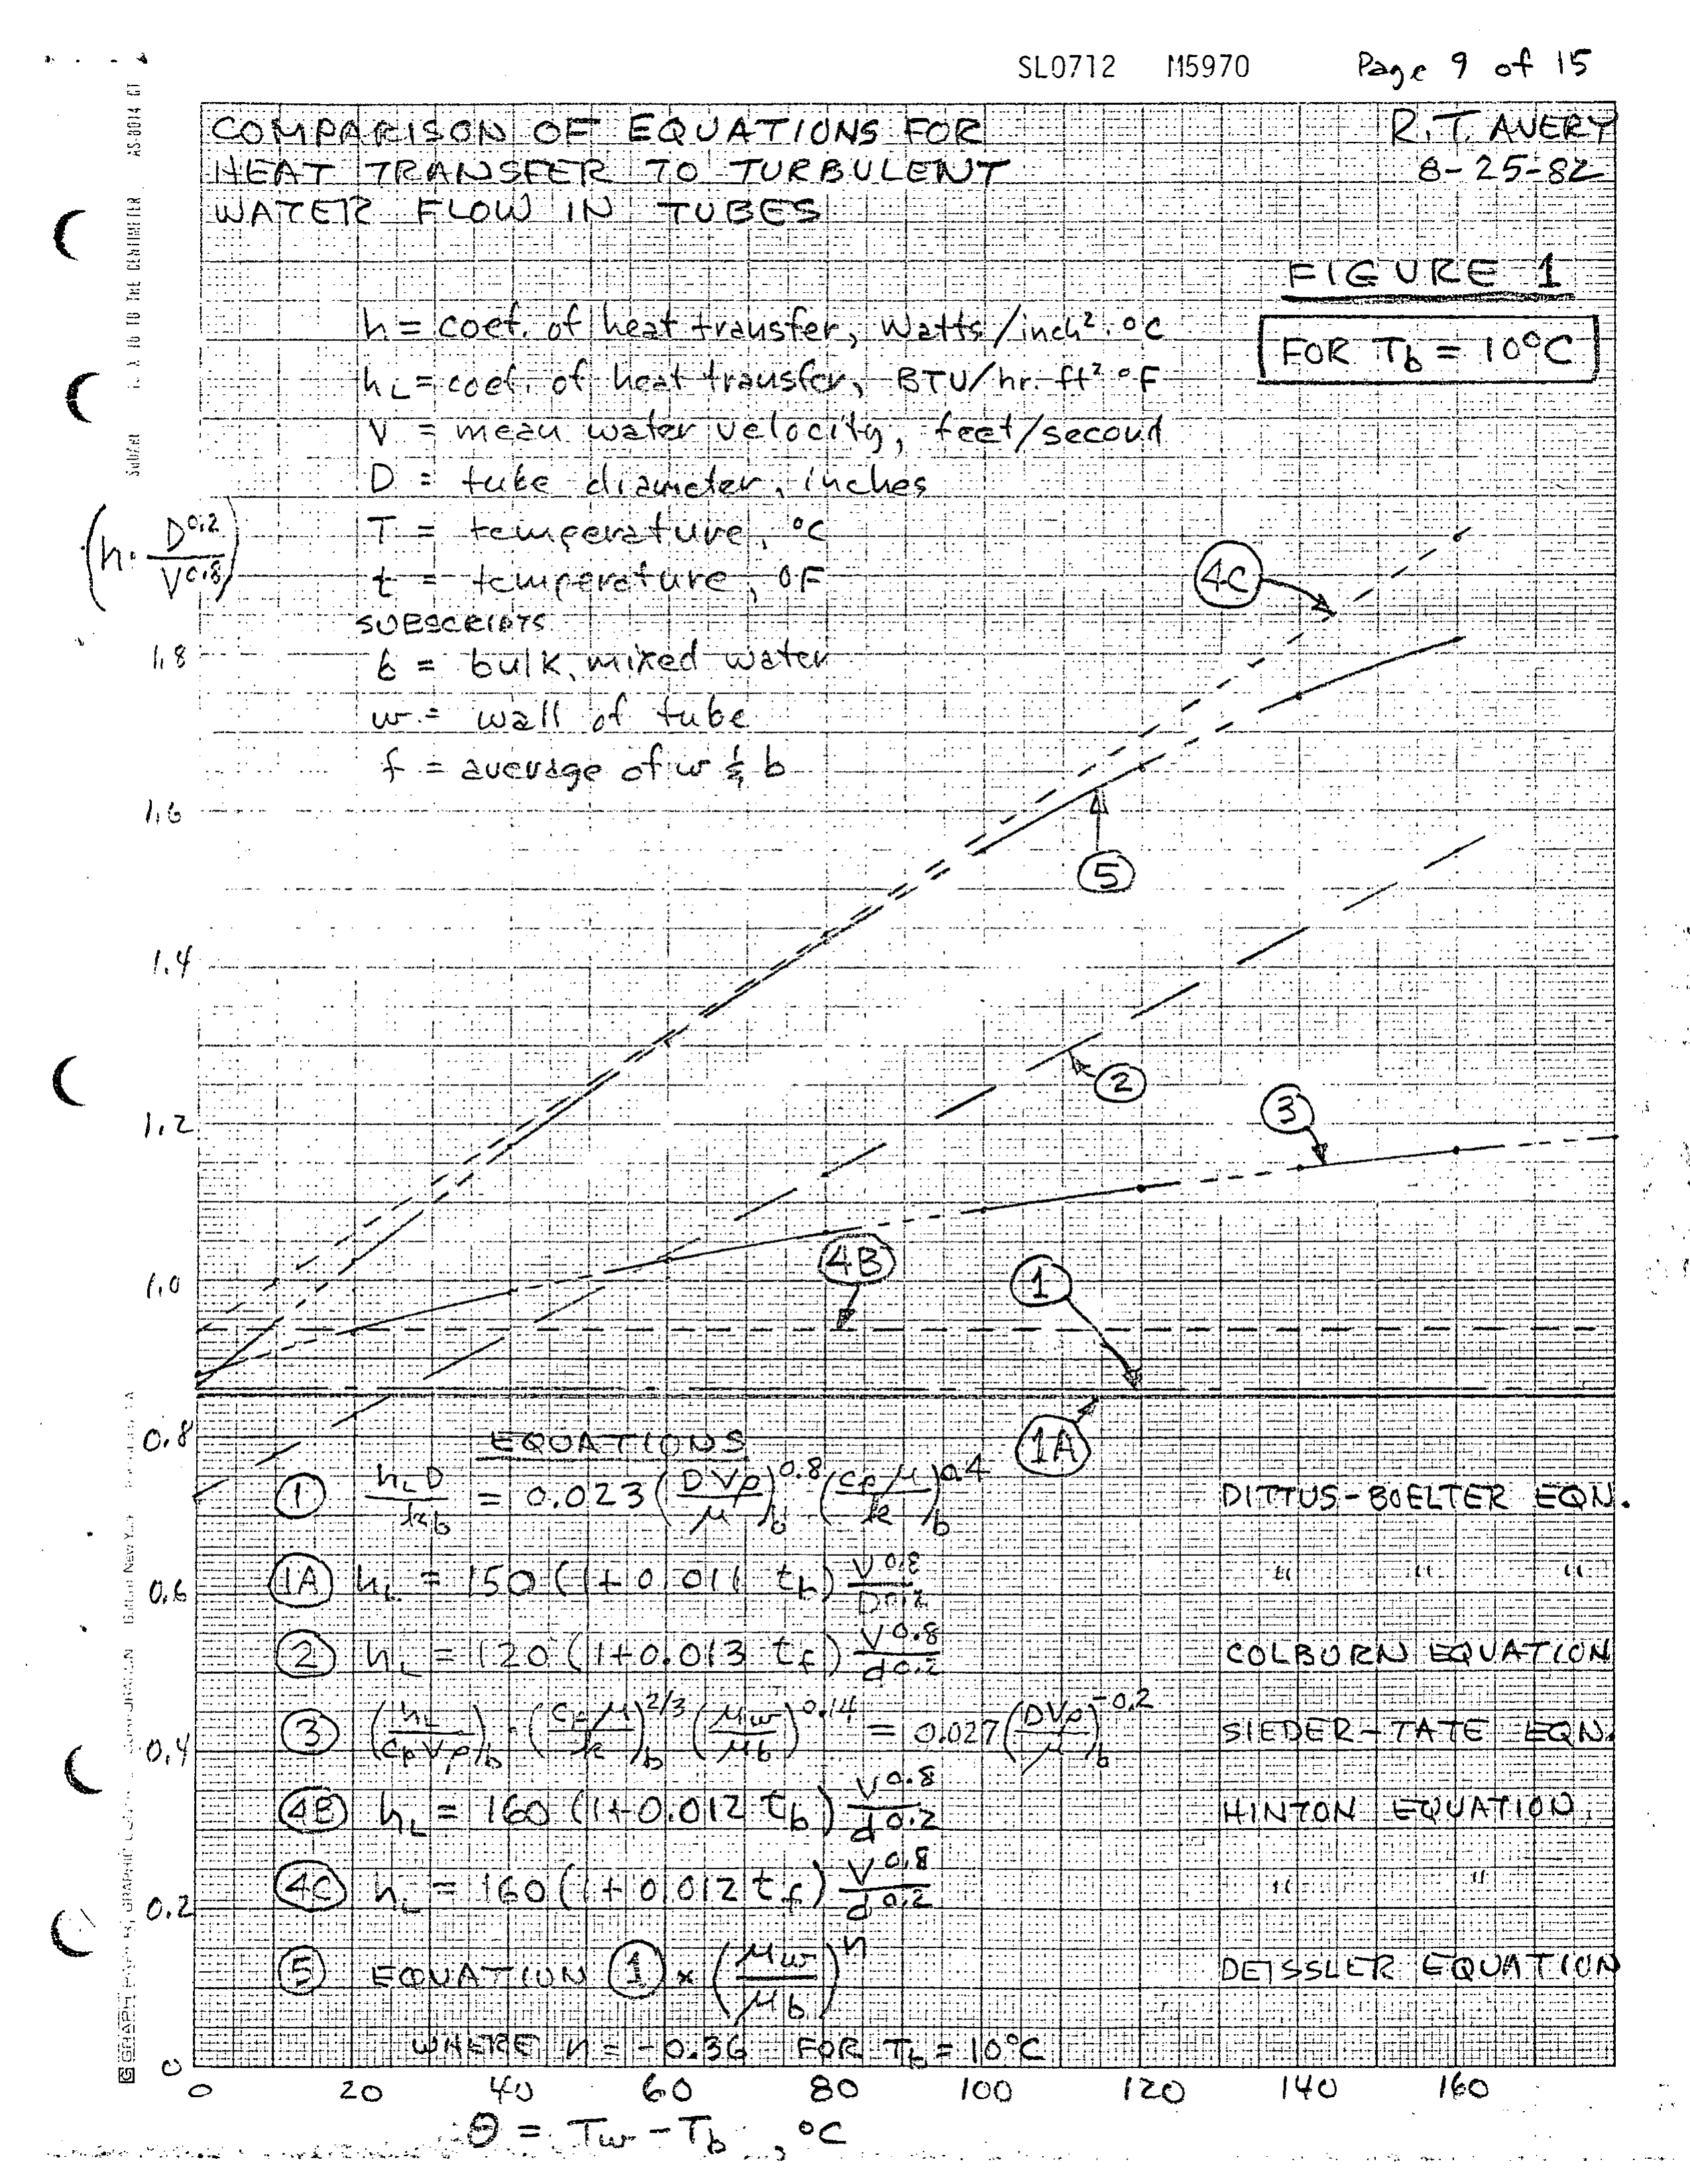 SL0712 M5970 Page 9 of 15
COMPARISON OF EQUATIONS FOR
HEAT TRANSFER TO TURBULENT
WATER FLOW IN TUBES
R.T. AVERY
8-25-82
FIGURE 1
FOR Tb = 10°C
h = coef. of heat transfer, Watts/inch²·°C
hL = coef. of heat transfer, BTU/hr. ft² °F
V = mean water velocity, feet/second
D = tube diameter, inches
T = temperature, °C
t = temperature, °F
SUBSCRIPTS
b = bulk, mixed water
w = wall of tube
f = average of w & b
(h · D^0.2 / V^0.8)
1.8
1.6
1.4
1.2
1.0
0.8
0.6
0.4
0.2
0
4C
5
2
3
4B
1
1A
EQUATIONS
1 hL D / kb = 0.023 (DVρ/μ)b^0.8 (cp μ/k)b^0.4 DITTUS-BOELTER EQN.
1A hL = 150 (1+0.011 tb) V^0.8 / D^0.2 " " "
2 hL = 120 (1+0.013 tf) V^0.8 / d^0.2 COLBURN EQUATION
3 (hL / cp V ρ)b · (cp μ / k)b^2/3 (μw / μb)^0.14 = 0.027 (DVρ / μ)b^-0.2 SIEDER-TATE EQN.
4B hL = 160 (1+0.012 tb) V^0.8 / d^0.2 HINTON EQUATION
4C hL = 160 (1+0.012 tf) V^0.8 / d^0.2 " "
5 EQUATION 1 × (μw / μb)^n DEISSLER EQUATION
WHERE n = -0.36 FOR Tb = 10°C
0 20 40 60 80 100 120 140 160
θ = Tw - Tb, °C
SQUARE 10 TO THE CENTIMETER AS-8014 GT
GRAPH PAPER